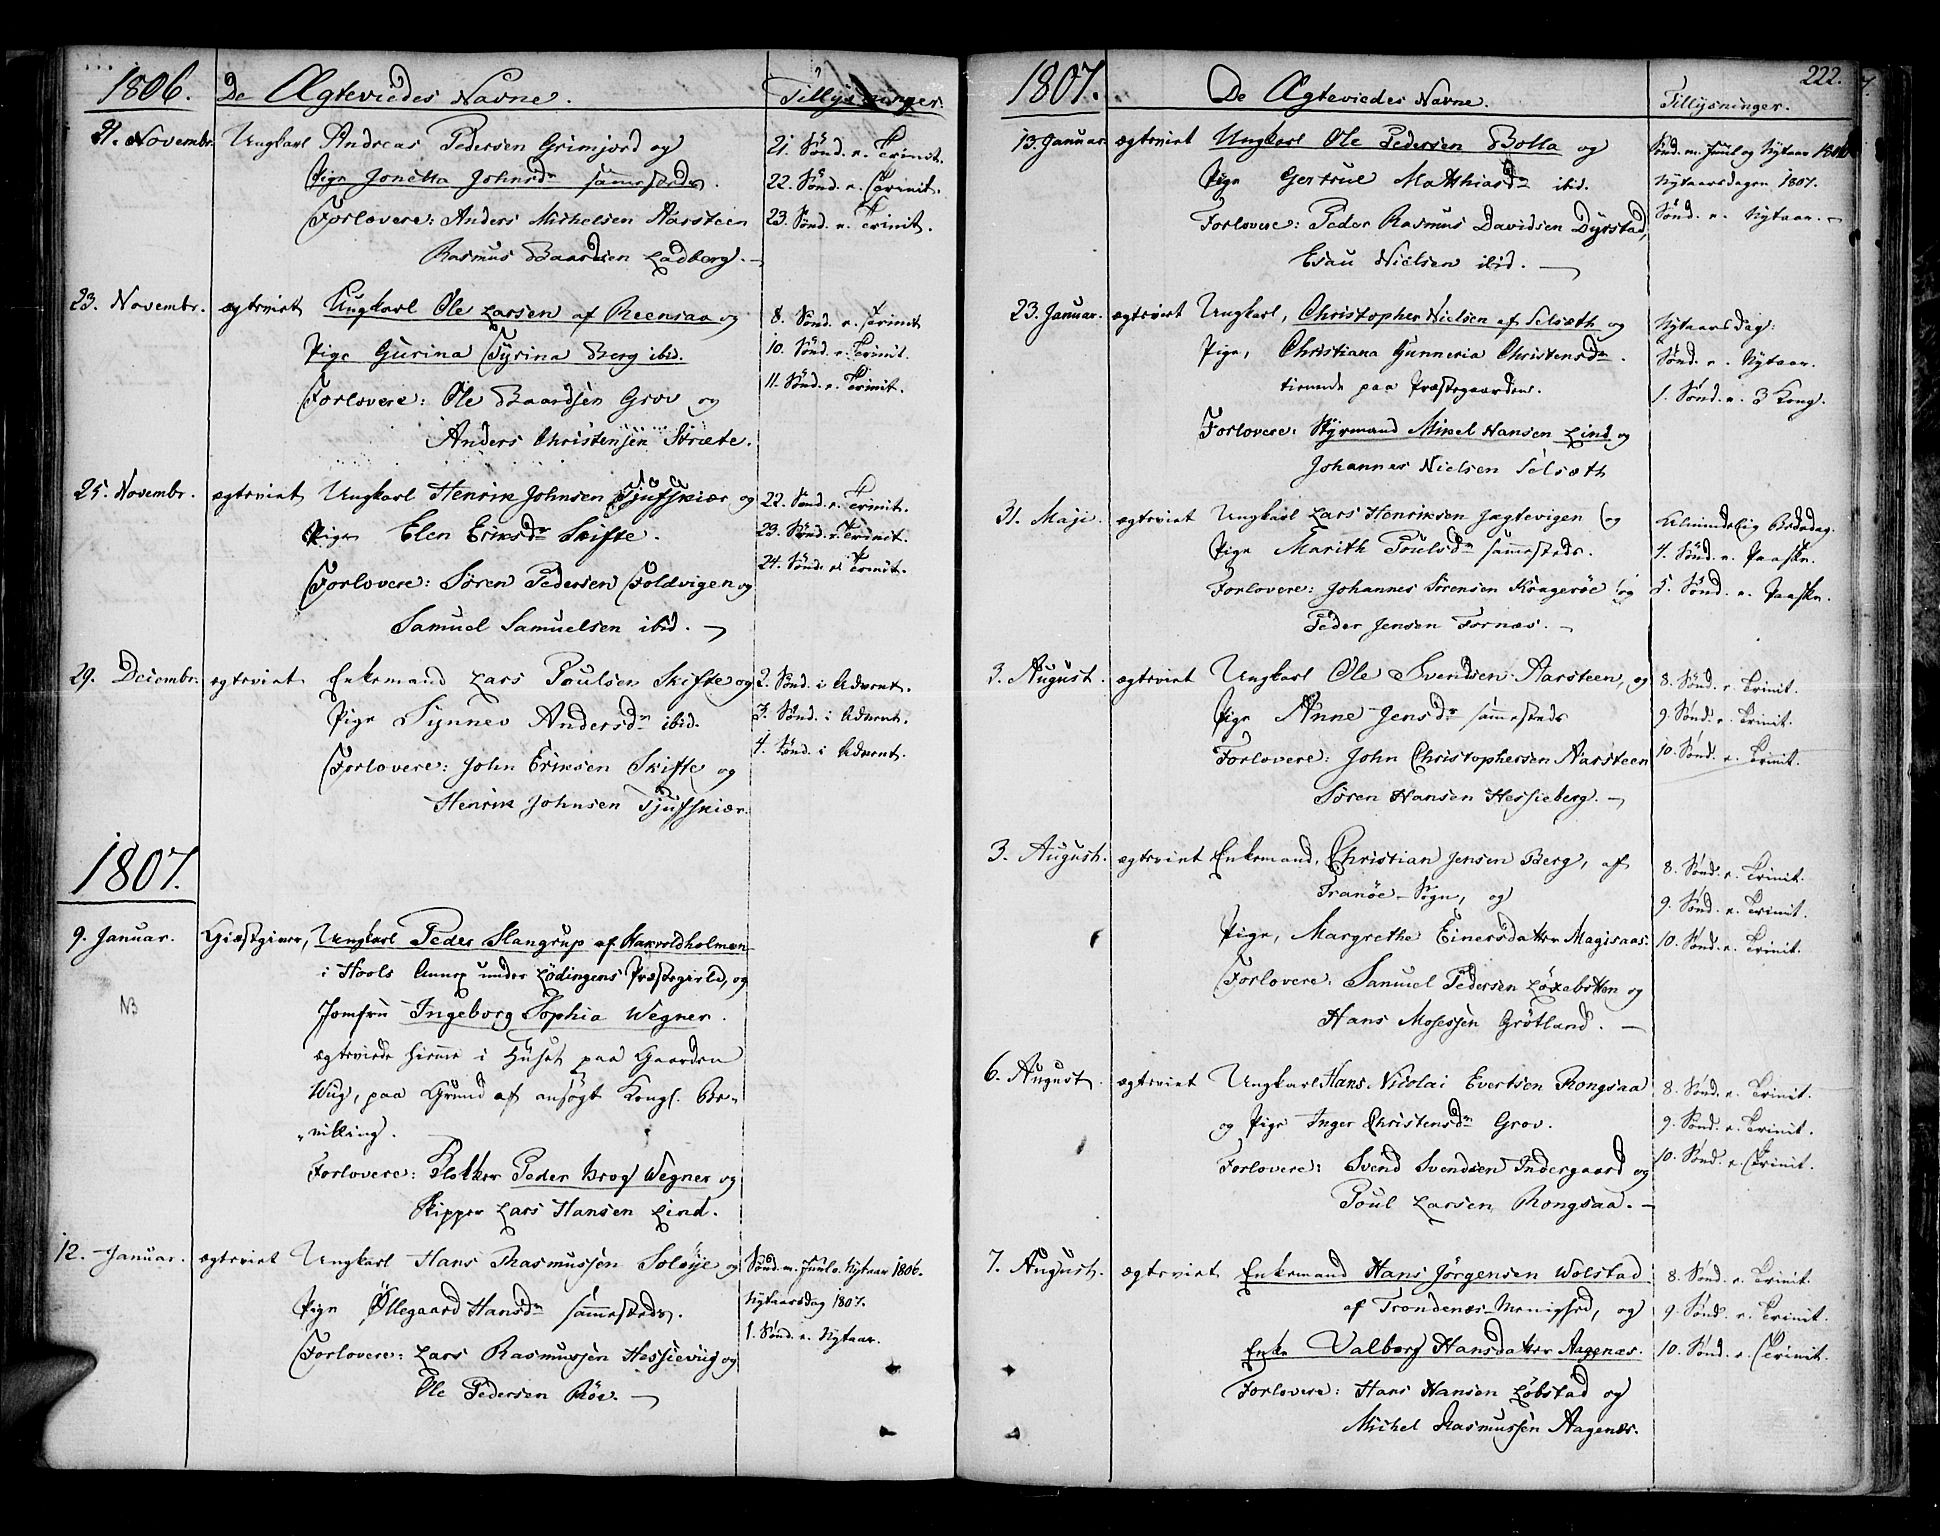 1806. De Ægteviedes Navne. Tillysninger.
21. Novembr. Ungkarl Andreas Pedersen Grimjord og
Pige Jonetta Johnsdr sammesteds.
Forlovere: Anders Michelsen Aarsteen
Rasmus Baardsen Ladberg.
21. Sønd. e. Trinit.
22. Sønd. e. Trinit.
23. Sønd. e. Trinit.
23. Novembr. egteviet Ungkarl Ole Larsen af Reensaa og
Pige Gurina Tyrina Berg ibid.
Forlovere: Ole Baardsen Grov og
Anders Christensen Stræte.
8. Sønd. e. Trinit
10. Sønd. e. Trinit.
11. Sønd. e. Trinit.
25. Novembr. egteviet Ungkarl Henrik Johnsen Tjufskiær og
Pige Elen Eriksdr Skifte.
Forlovere: Søren Pedersen Foldvigen og
Samuel Samuelsen ibid.
22. Sønd. e. Trinit.
23. Sønd. e. Trinit.
24. Sønd. e. Trinit.
29. Decembr. egteviet Enkemand Lars Poulsen Skifte og
Pige Synnev Andersdr ibid.
Forlovere: John Eriksen Skifte og
Henrik Johnsen Tjufskiær.
2. Sønd. i Advent.
3. Sønd. i Advent.
4. Sønd. i Advent.
1807.
9. Januar. Giæstgiver, Ungkarl Peder Slangrup af
i Hools Annex under Lödingens Præstegield, og
NB
Jomfrü Ingeborg Sophia Wegner.
egteviede hiemme i Huset paa Gaarden
Wug, paa Grund af ansøgt Kongl. Be-
"villing.
Forlovere: Klokker Peder Krog Wegner og
Skipper Lars Hansen Lind.
12. Januar. egteviet Ungkarl Hans Rasmussen Soløye og
Pige Øllegaard Hansdr sammesteds.
Forlovere: Lars Rasmussen Hessievüg og
Ole Pedersen Röe.
Sønd. m. Juul o. Nytaar 1806.
Nytaarsdag 1807.
1. Sønd. e. Nytaar.
222.
1807. De Ægteviedes Navne. Tillysninger.
13. Januar egteviet Ungkarl Ole Pedersen Bolla og
Pige Gertrue Matthiasdr ibid.
Forlovere: Peder Rasmus Davidsen Dyrstad,
Esau Nielsen ibid.
Sønd. m. Juul og Nytaar 1806
Nytaarsdagen 1807.
Sønd. e. Nytaar.
23. Januar. egteviet Ungkarl, Christopher Nielsen af Selsæth og
Pige, Christiana Gunneria Christensdr.
tienende paa Præstegaarden.
Forlovere: Styrmand Mikel Hansen Lind og
Johannes Nielsen Selsæth
Nytaarsdag:
Sønd. e. Nytaar.
1. Sønd. e. 3 Kong.
31. Maji. egteviet Ungkarl Lars Henriksen Jægtevigen og
Pige Marith Poulsdr sammesteds.
Forlovere: Johannes Sørensen Kragerøe og
Peder Jensen Fornæs.
Almindelig Bededag.
4. Sønd. e. Paaske.
5. Sønd. e. Paaske.
3. August. egteviet Ungkarl Ole Svendsen Aarsteen, og
Pige Anne Jensdr sammesteds
Forlovere: John Christophersen Aarsteen
Søren Hansen Hessieberg.
8. Sønd. e. Trinit.
9. Sønd. e. Trinit.
10. Sønd. e. Trinit.
3. August. egteviet Enkemand, Christian Jensen Berg, af
Tranöe-Sogn, og
Pige, Margrethe Einersdatter Magisaas.
Forlovere: Samuel Pedersen Løxebotten og
Hans Mosessen Grøtland.
8. Sønd. e. Trinit.
9. Sønd. e. Trinit.
10. Sønd. e. Trinit.
6. August. egteviet Ungkarl Hans Nicolai Evertsen Rongsaa
og Pige Inger Christensdr Grov.
Forlovere: Svend Svendsen Indergaard og
Poul Larsen Rongsaa.
8. Sønd. e. Trinit.
9. Sønd. e. Trinit.
10. Sønd. e. Trinit.
7. August. egteviet Enkemand Hans Jørgensen Wolstad
af Trondenæs-Menighed, og
Enke Valborg Hansdatter Aagenæs.
Forlovere: Hans Hansen Løbstad og
Michel Rasmussen Aagenæs.
8. Sønd. e. Trinit.
9. Sønd. e. Trinit.
10. Sønd. e. Trinit.